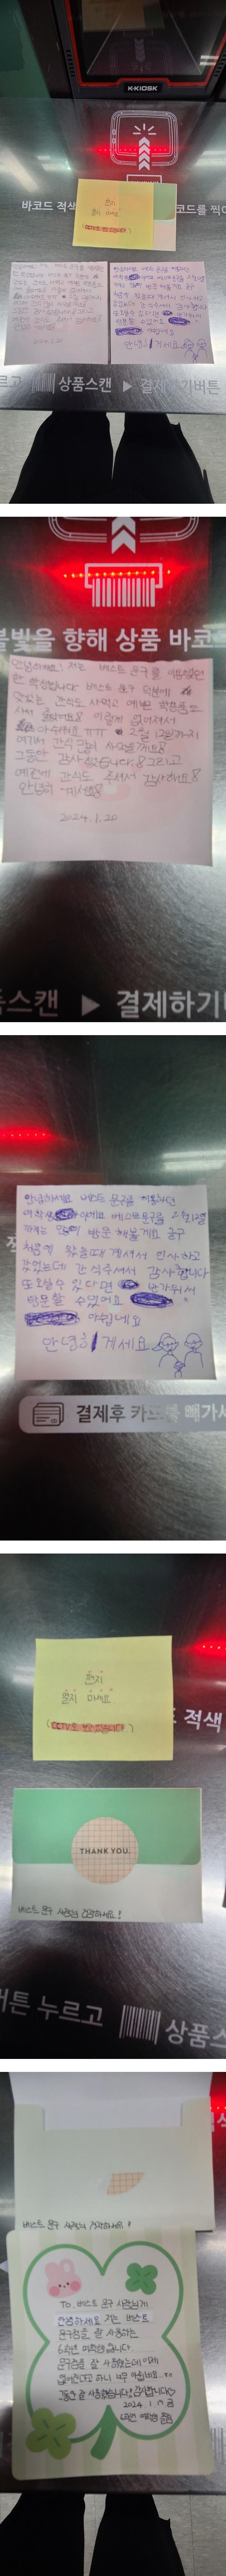 K-KIOSK
바코드 적색
코드를 찍
편지
열지 마세요.
2024.1.20
안녕히 계세요
르고
상품스캔 ▶ 결제
기버튼
불빛을 향해 상품 바코
안녕하세요! 저는 베스트 문구를 이용했던
한 학생입니다 베스트 문구 덕분에
맛있는 간식도 사먹고 예쁜 학용품도
사서 좋았어요8 이렇게 없어져서
아쉬워요 ㅠㅠ 2월 12일까지
여기서 간식 많이 사먹을게요8
그동안 감사했습니다.8 그리고
예전에 간식도 주셔서 감사해요8
안녕히 계세요8
2024.1.20
스캔 ▶ 결제하기
안녕하세요 베스트 문구를 이용하던
여학생 이에요 베스트문구를 2월12일
까지는 많이 방문 해볼게요 문구
처음에 왔을때 계셔서 인사하고
갔었는데 간식주셔서 감사합니다
또 오실수 있다면 반가워서
방문할 수있어요
아쉽네요
안녕히 계세요
결제후 카드를 빼가세
편지
열지 마세요.
적색
THANK YOU.
베스트 문구 사장님 건강하세요!
버튼 누르고
상품스
베스트 문구 사장님 건강하세요!
To. 베스트 문구 사장님께
안녕하세요 저는 베스트
문구점을 잘 사용하는
6학년 여학생 입니다.
문구점을 잘 사용했는데 이제
없어진다고 하니 너무 아쉽네요..
그동안 잘 사용했습니다. 감사합니다♡
2024. 1. 금
6학년 여학생 올림